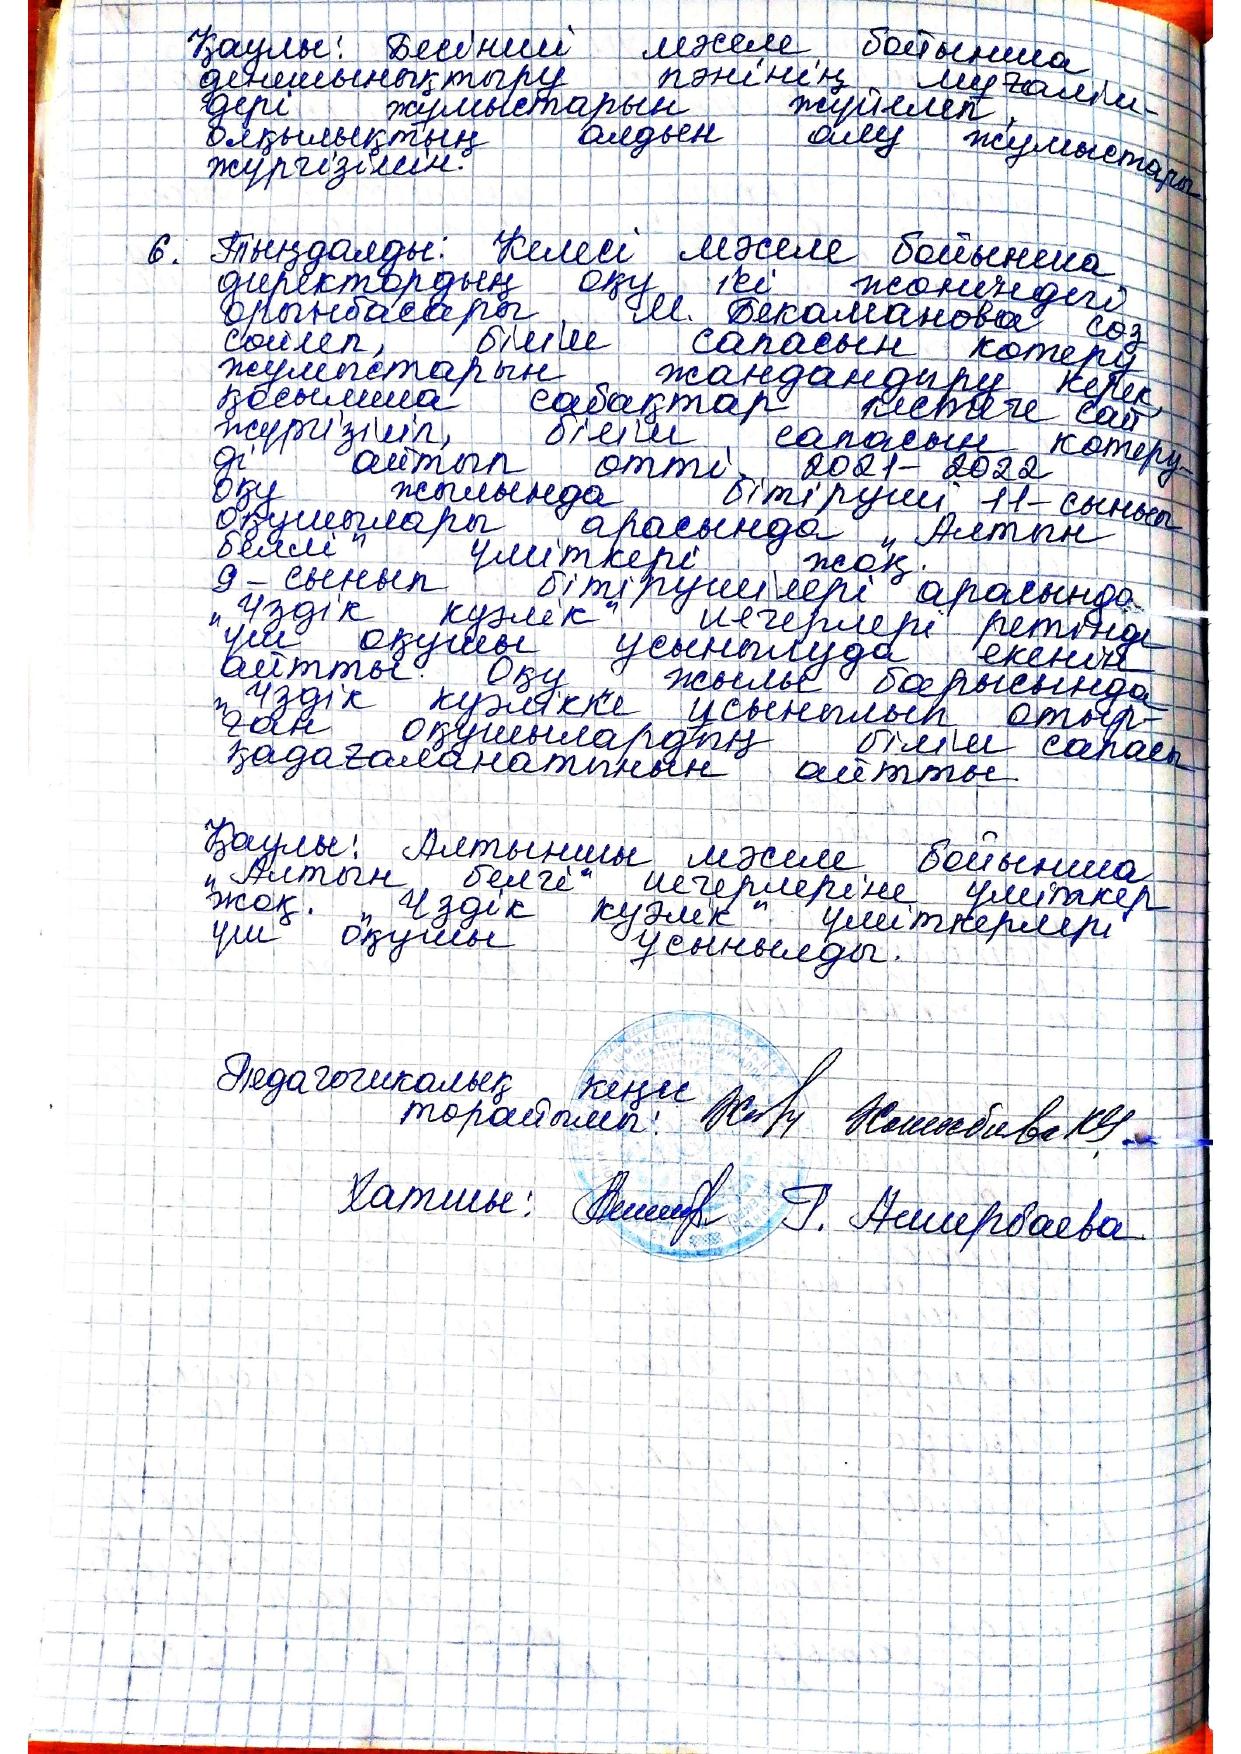 Қаулы: Бесінші мәселе бойынша
денешынықтыру пәнінің мұғалім-
дері жұмыстарын жүйелеп,
олқылықтың алдын алу жұмыстары
жүргізілсін.
6. Тыңдалды: Келесі мәселе бойынша
директордың оқу ісі жөніндегі
орынбасары М. Бекаманова сөз
сөйлеп, білім сапасын көтеру
жұмыстарын жандандыру керек,
қосымша сабақтар кестеге сай
жүргізіліп, білім сапасын көтеру-
ді айтып өтті. 2021-2022
оқу жылында бітіруші 11-сынып
оқушылары арасында „Алтын
белгі" үміткері жоқ.
9-сынып бітірушілері арасында
„Үздік куәлік" иегерлері ретінде
үш оқушы ұсынылуда екенін
айтты. Оқу жылы барысында
„Үздік куәлікке ұсынылып отыр-
ған оқушылардың білім сапасы
қадағаланатынын айтты.
Қаулы: Алтыншы мәселе бойынша
„Алтын белгі" иегерлеріне үміткер
жоқ. „Үздік куәлік" үміткерлері
үш оқушы ұсынылды.
Педагогикалық кеңес
төрайымы:
Хатшы: Г. Аширбаева